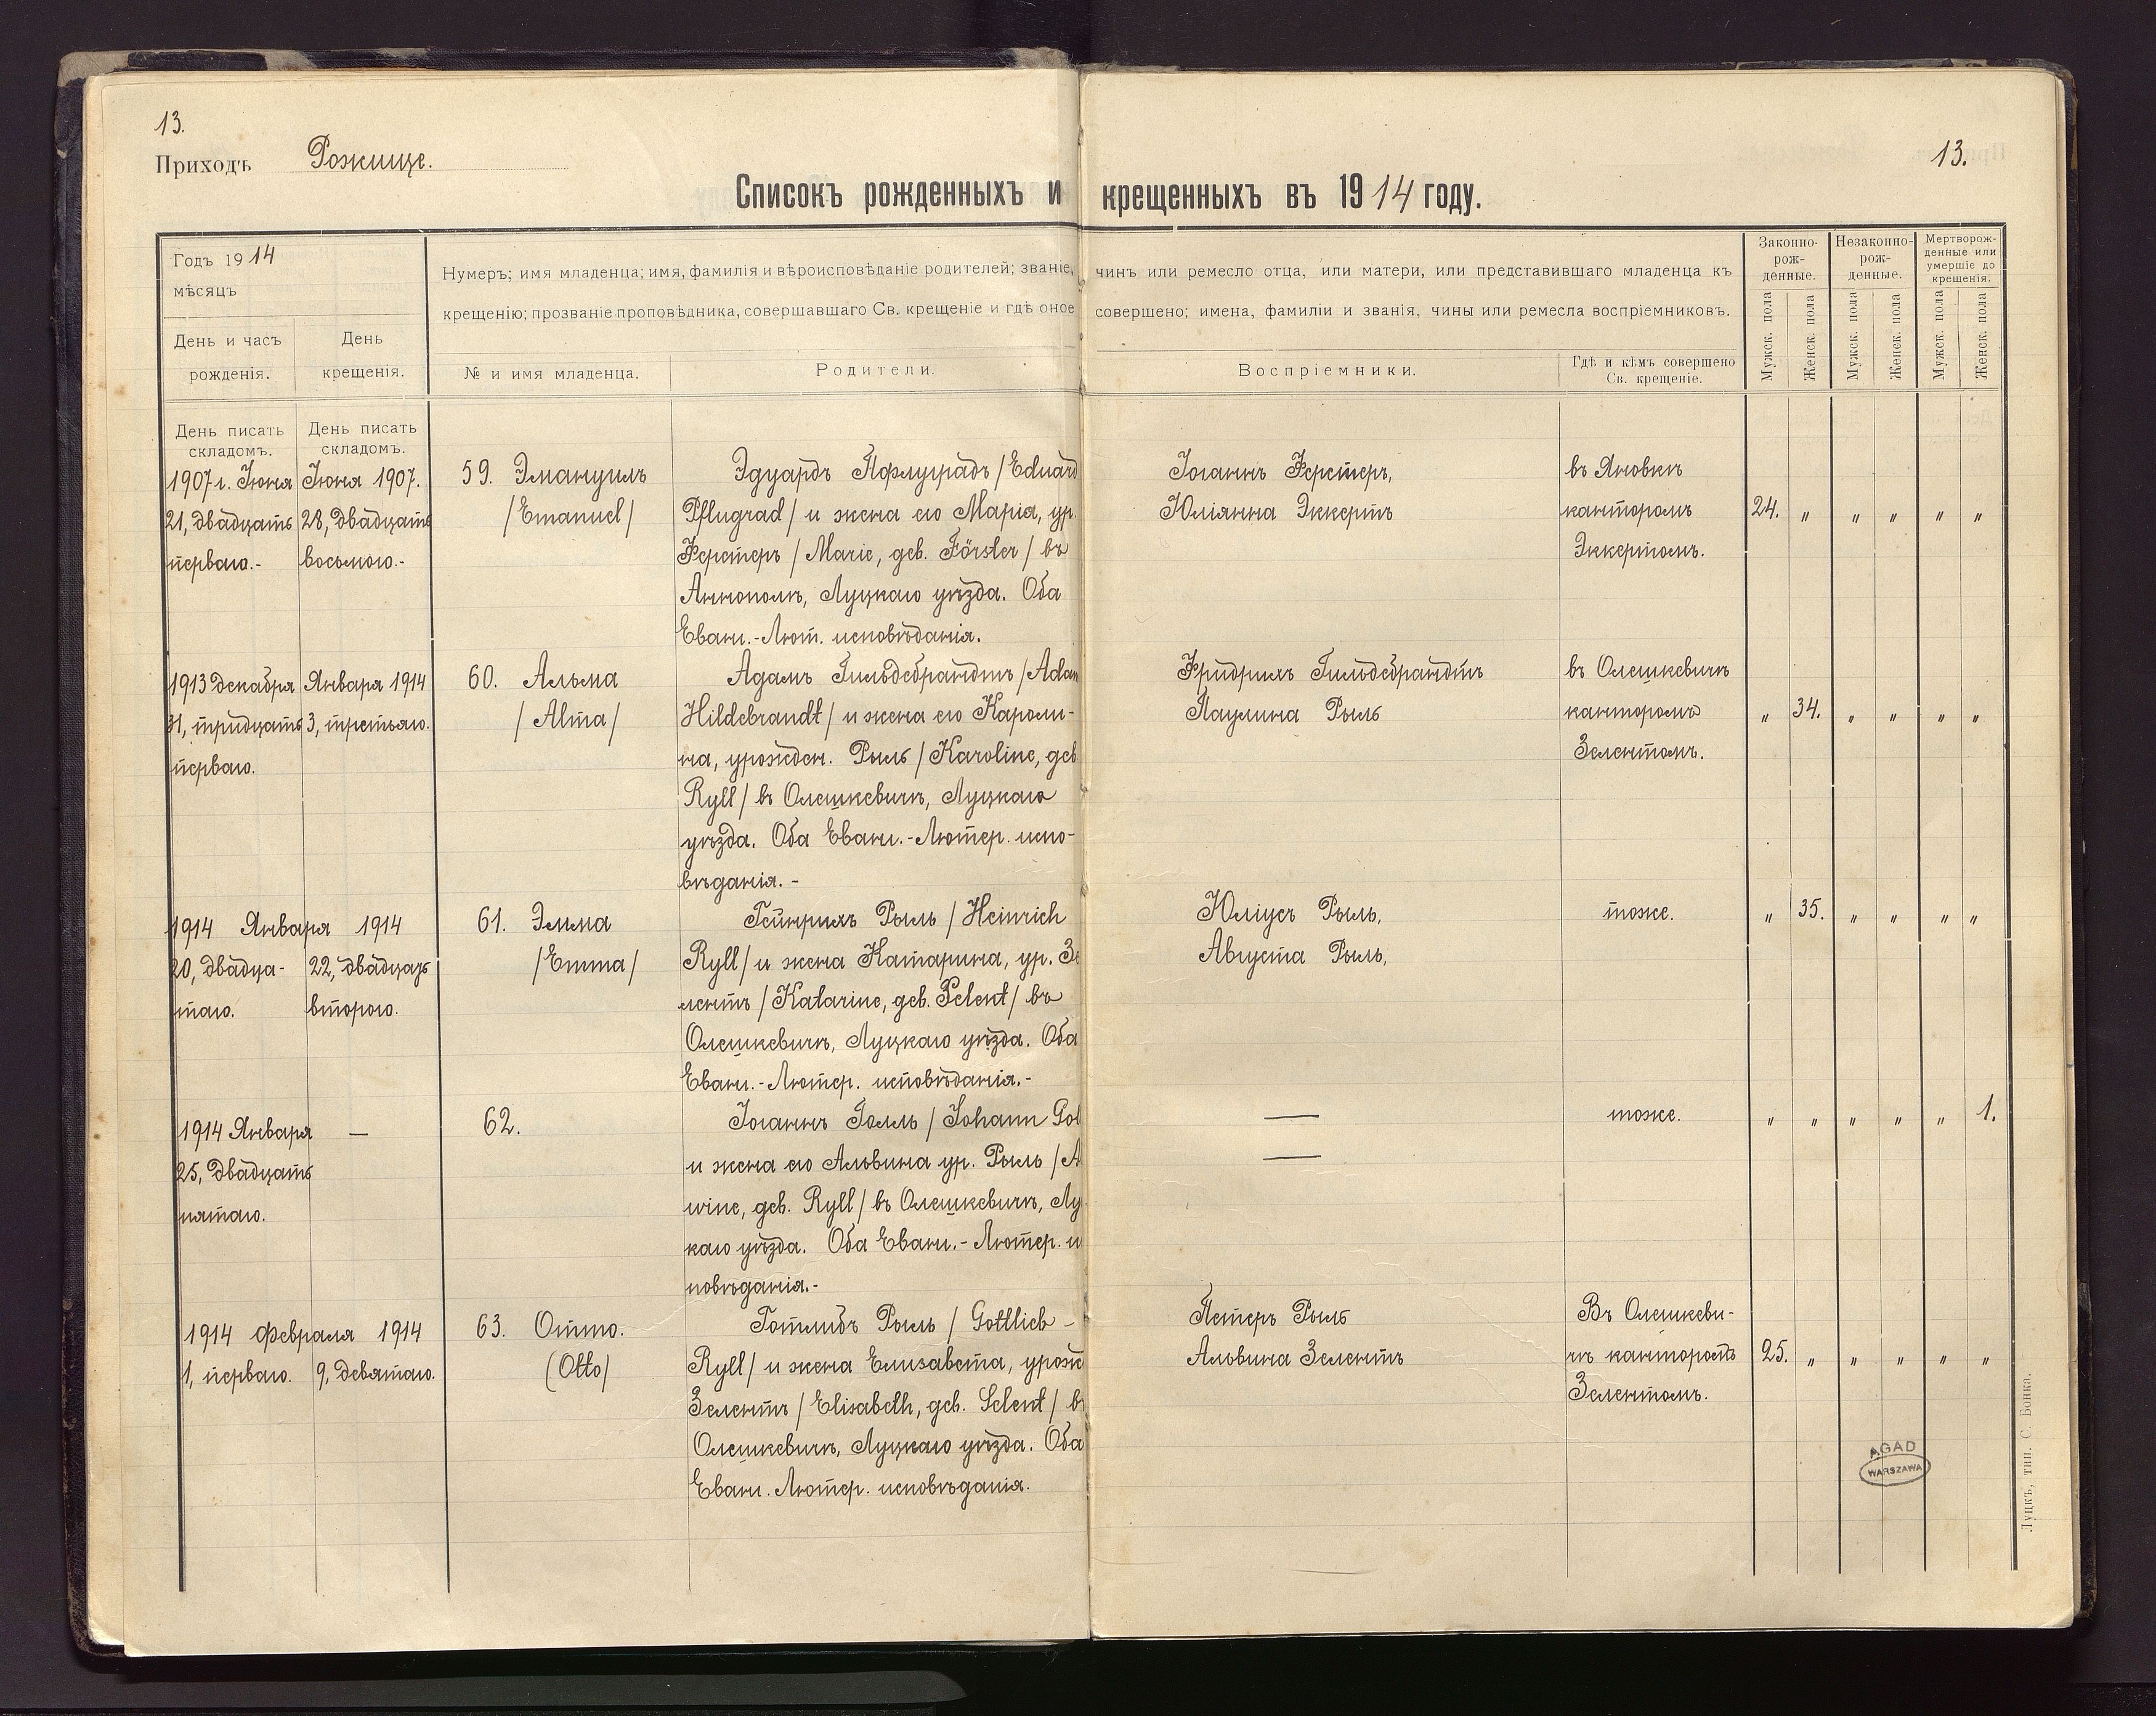 13.
Приходъ Рожище.
13.
Списокъ рожденныхъ и крещенныхъ въ 1914 году.
Годъ 1914
мѣсяцъ
День и часъ
рожденія.
День
крещенія.
Нумеръ; имя младенца; имя, фамилія и вѣроисповѣданіе родителей; званіе, чинъ или ремесло отца, или матери, или представившаго младенца къ
крещенію; прозваніе проповѣдника, совершавшаго Св. крещеніе и гдѣ оное совершено; имена, фамиліи и званія, чины или ремесла воспріемниковъ.
№ и имя младенца.
Родители.
Воспріемники.
Гдѣ и кѣмъ совершено
Св. крещеніе.
Законно-
рож-
денные.
Незаконно-
рож-
денные.
Мертворож-
денные или
умершіе до
крещенія.
Мужск. пола
Женск. пола
Мужск. пола
Женск. пола
Мужск. пола
Женск. пола
День писать
складомъ.
День писать
складомъ.
1907 г. Іюня
21, двадцать
перваго.-
Іюня 1907.
28, двадцать
восьмого.-
59. Эмануилъ
/Emanuel/
Эдуардъ Пфлуградъ /Eduard
Pflugrad/ и жена его Марія, ур.
Ферстеръ /Marie, geb. Förster/ въ
Аннополѣ, Луцкаго уѣзда. Оба
Еванг.-Лют. исповѣданія.
Іоганнъ Ферстеръ,
Юліянна Эккертъ
въ Яновкѣ
канторомъ
Эккертомъ.
24. " " " " "
1913 декабря
31, тридцать
перваго.
Января 1914
3, третьяго.
60. Альма
/Alma/
Адамъ Гильдебрандтъ /Adam
Hildebrandt/ и жена его Кароли-
на, урожден. Рыль /Karoline, geb
Ryll/ въ Олешкевичѣ, Луцкаго
уѣзда. Оба Еванг.-Лютер. испо-
вѣданія.-
Фридрихъ Гильдебрандтъ
Паулина Рыль
въ Олешкевичѣ
канторомъ
Зелентомъ.
" 34. " " " "
1914 Января 1914
20, двадца-
таго.
22, двадцать
второго.
61. Эмма
/Emma/
Гейнрихъ Рыль /Heinrich
Ryll/ и жена Катарина, ур. Зе
лентъ /Katarine, geb. Selent/ въ
Олешкевичѣ, Луцкаго уѣзда. Оба
Еванг.-Лютер. исповѣданія.-
Юліусъ Рыль,
Августа Рыль,
тоже.
" 35. " " " "
1914 Января
25, двадцать
пятаго.
—
62.
Іоганнъ Голль /Johann Gol
и жена его Альвина ур. Рыль /A
wine, geb. Ryll/ въ Олешкевичѣ, Лу
каго уѣзда. Оба Еванг.-Лютер. и
повѣданія.-
—
—
тоже.
" " " " " 1.
1914 Февраля 1914
1, перваго.
9, девятаго.
63. Отто.
(Otto/
Готлибъ Рыль /Gottlieb -
Ryll/ и жена Елисабета, урож
Зелентъ /Elisabeth, geb. Selent/ въ
Олешкевичѣ, Луцкаго уѣзда. Оба
Еванг. Лютер. исповѣданія.
Петеръ Рыль
Альвина Зелентъ
Въ Олешкеви-
чѣ канторомъ
Зелентомъ.
25. " " " " "
AGAD
WARSZAWA
Луцкъ, тип. С. Бонка.